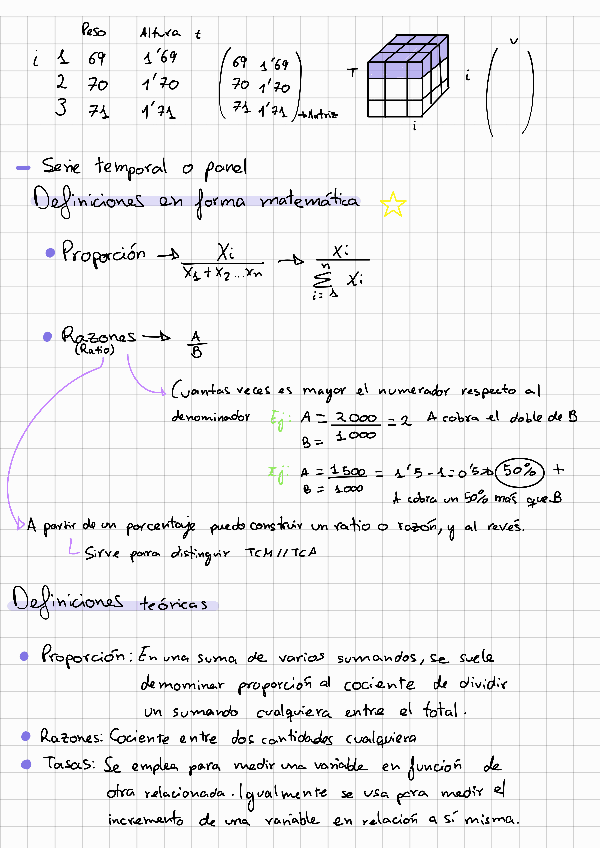 Peso Altura t
i 1 69 1'69
2 70 1'70
3 71 1'71
69 1'69
70 1'70
71 1'71 → Matriz
T i i
v
- Serie temporal o panel
Definiciones en forma matemática
• Proporción → Xi / X1 + X2 ... Xn → Xi / n Σ i=1 Xi
• Razones → A / B
(Ratio)
Cuantas veces es mayor el numerador respecto al
denominador Ej: A = 2000 = 2 A cobra el doble de B
B = 1000
Ej: A = 1500 = 1'5 - 1 = 0'5 → 50% +
B = 1000
A cobra un 50% más que B
A partir de un porcentaje puedo construir un ratio o razón, y al revés.
Sirve para distinguir TCM//TCA
Definiciones teóricas
• Proporción: En una suma de varios sumandos, se suele
demominar proporción al cociente de dividir
un sumando cualquiera entre el total.
• Razones: Cociente entre dos cantidades cualquiera
• Tasas: Se emplea para medir una variable en función de
otra relacionada. Igualmente se usa para medir el
incremento de una variable en relación a sí misma.